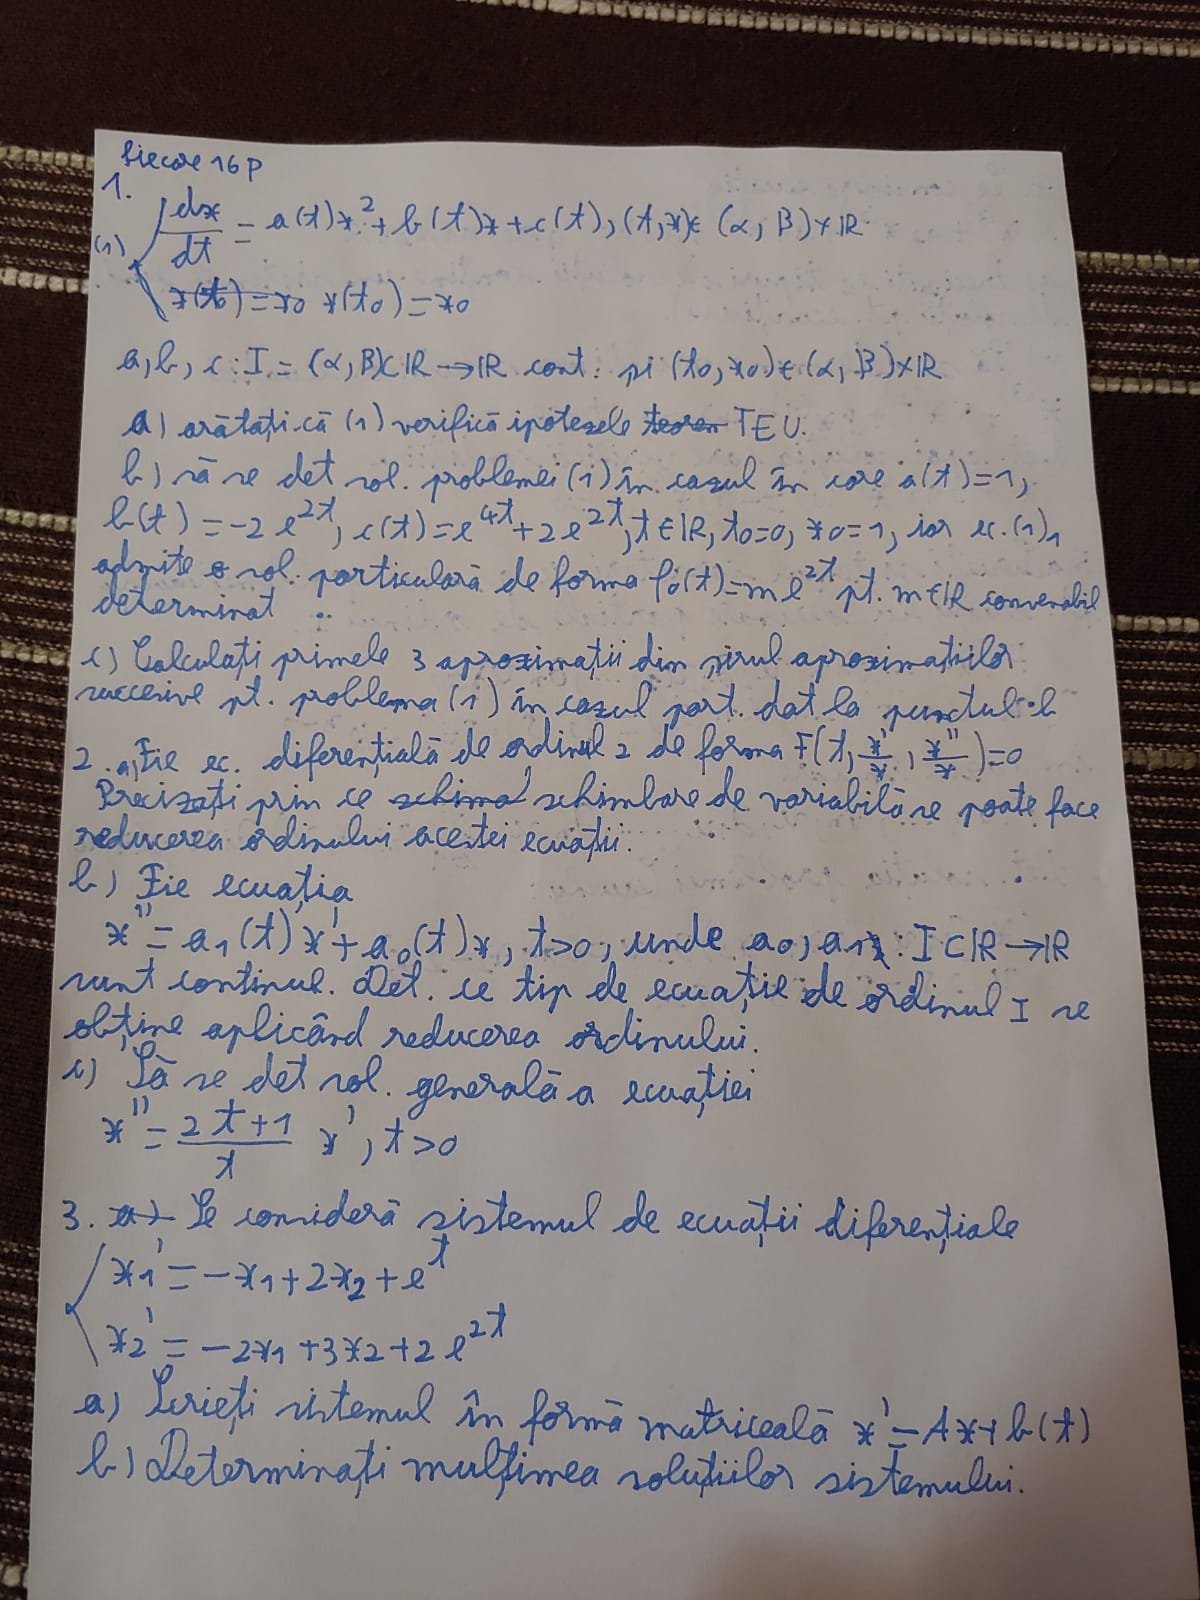 fiecare 16 p
1.
(1) { dx/dt = a(t)x² + b(t)x + c(t), (t,x)∈ (α, β)×ℝ
x(t0) = x0 x(t0) = x0
a, b, c : I = (α, β)⊂ℝ → ℝ cont. și (t0, x0)∈ (α, β)×ℝ
a) arătați că (1) verifică ipotezele teorem TEU.
b) să se det sol. problemei (1) în cazul în care a(t)=1,
b(t) = -2e^{2t}, c(t)=e^{4t}+2e^{2t}, t∈ℝ, t0=0, x0=1, iar ec. (1)₁
admite o sol. particulară de forma φ0(t)=me^{2t} pt. m∈ℝ convenabil
determinat
c) Calculați primele 3 aproximații din șirul aproximațiilor
succesive pt. problema (1) în cazul part. dat la punctul b
2. a, Fie ec. diferențială de ordinul 2 de forma F(t, x'/x, x''/x)=0
Precizați prin ce schima schimbare de variabilă se poate face
reducerea ordinului acestei ecuații.
b) Fie ecuația
x'' = a1(t)x' + a0(t)x, t>0, unde a0, a1 : I⊂ℝ → ℝ
sunt continue. Det. ce tip de ecuație de ordinul I se
obține aplicând reducerea ordinului.
c) Să se det sol. generală a ecuației
x'' = (2t+1)/t x', t>0
3. a) Se consideră sistemul de ecuații diferențiale
{ x1' = -x1 + 2x2 + e^t
x2' = -2x1 + 3x2 + 2e^{2t}
a) Scrieți sistemul în formă matriceală x' = Ax + b(t)
b) Determinați mulțimea soluțiilor sistemului.